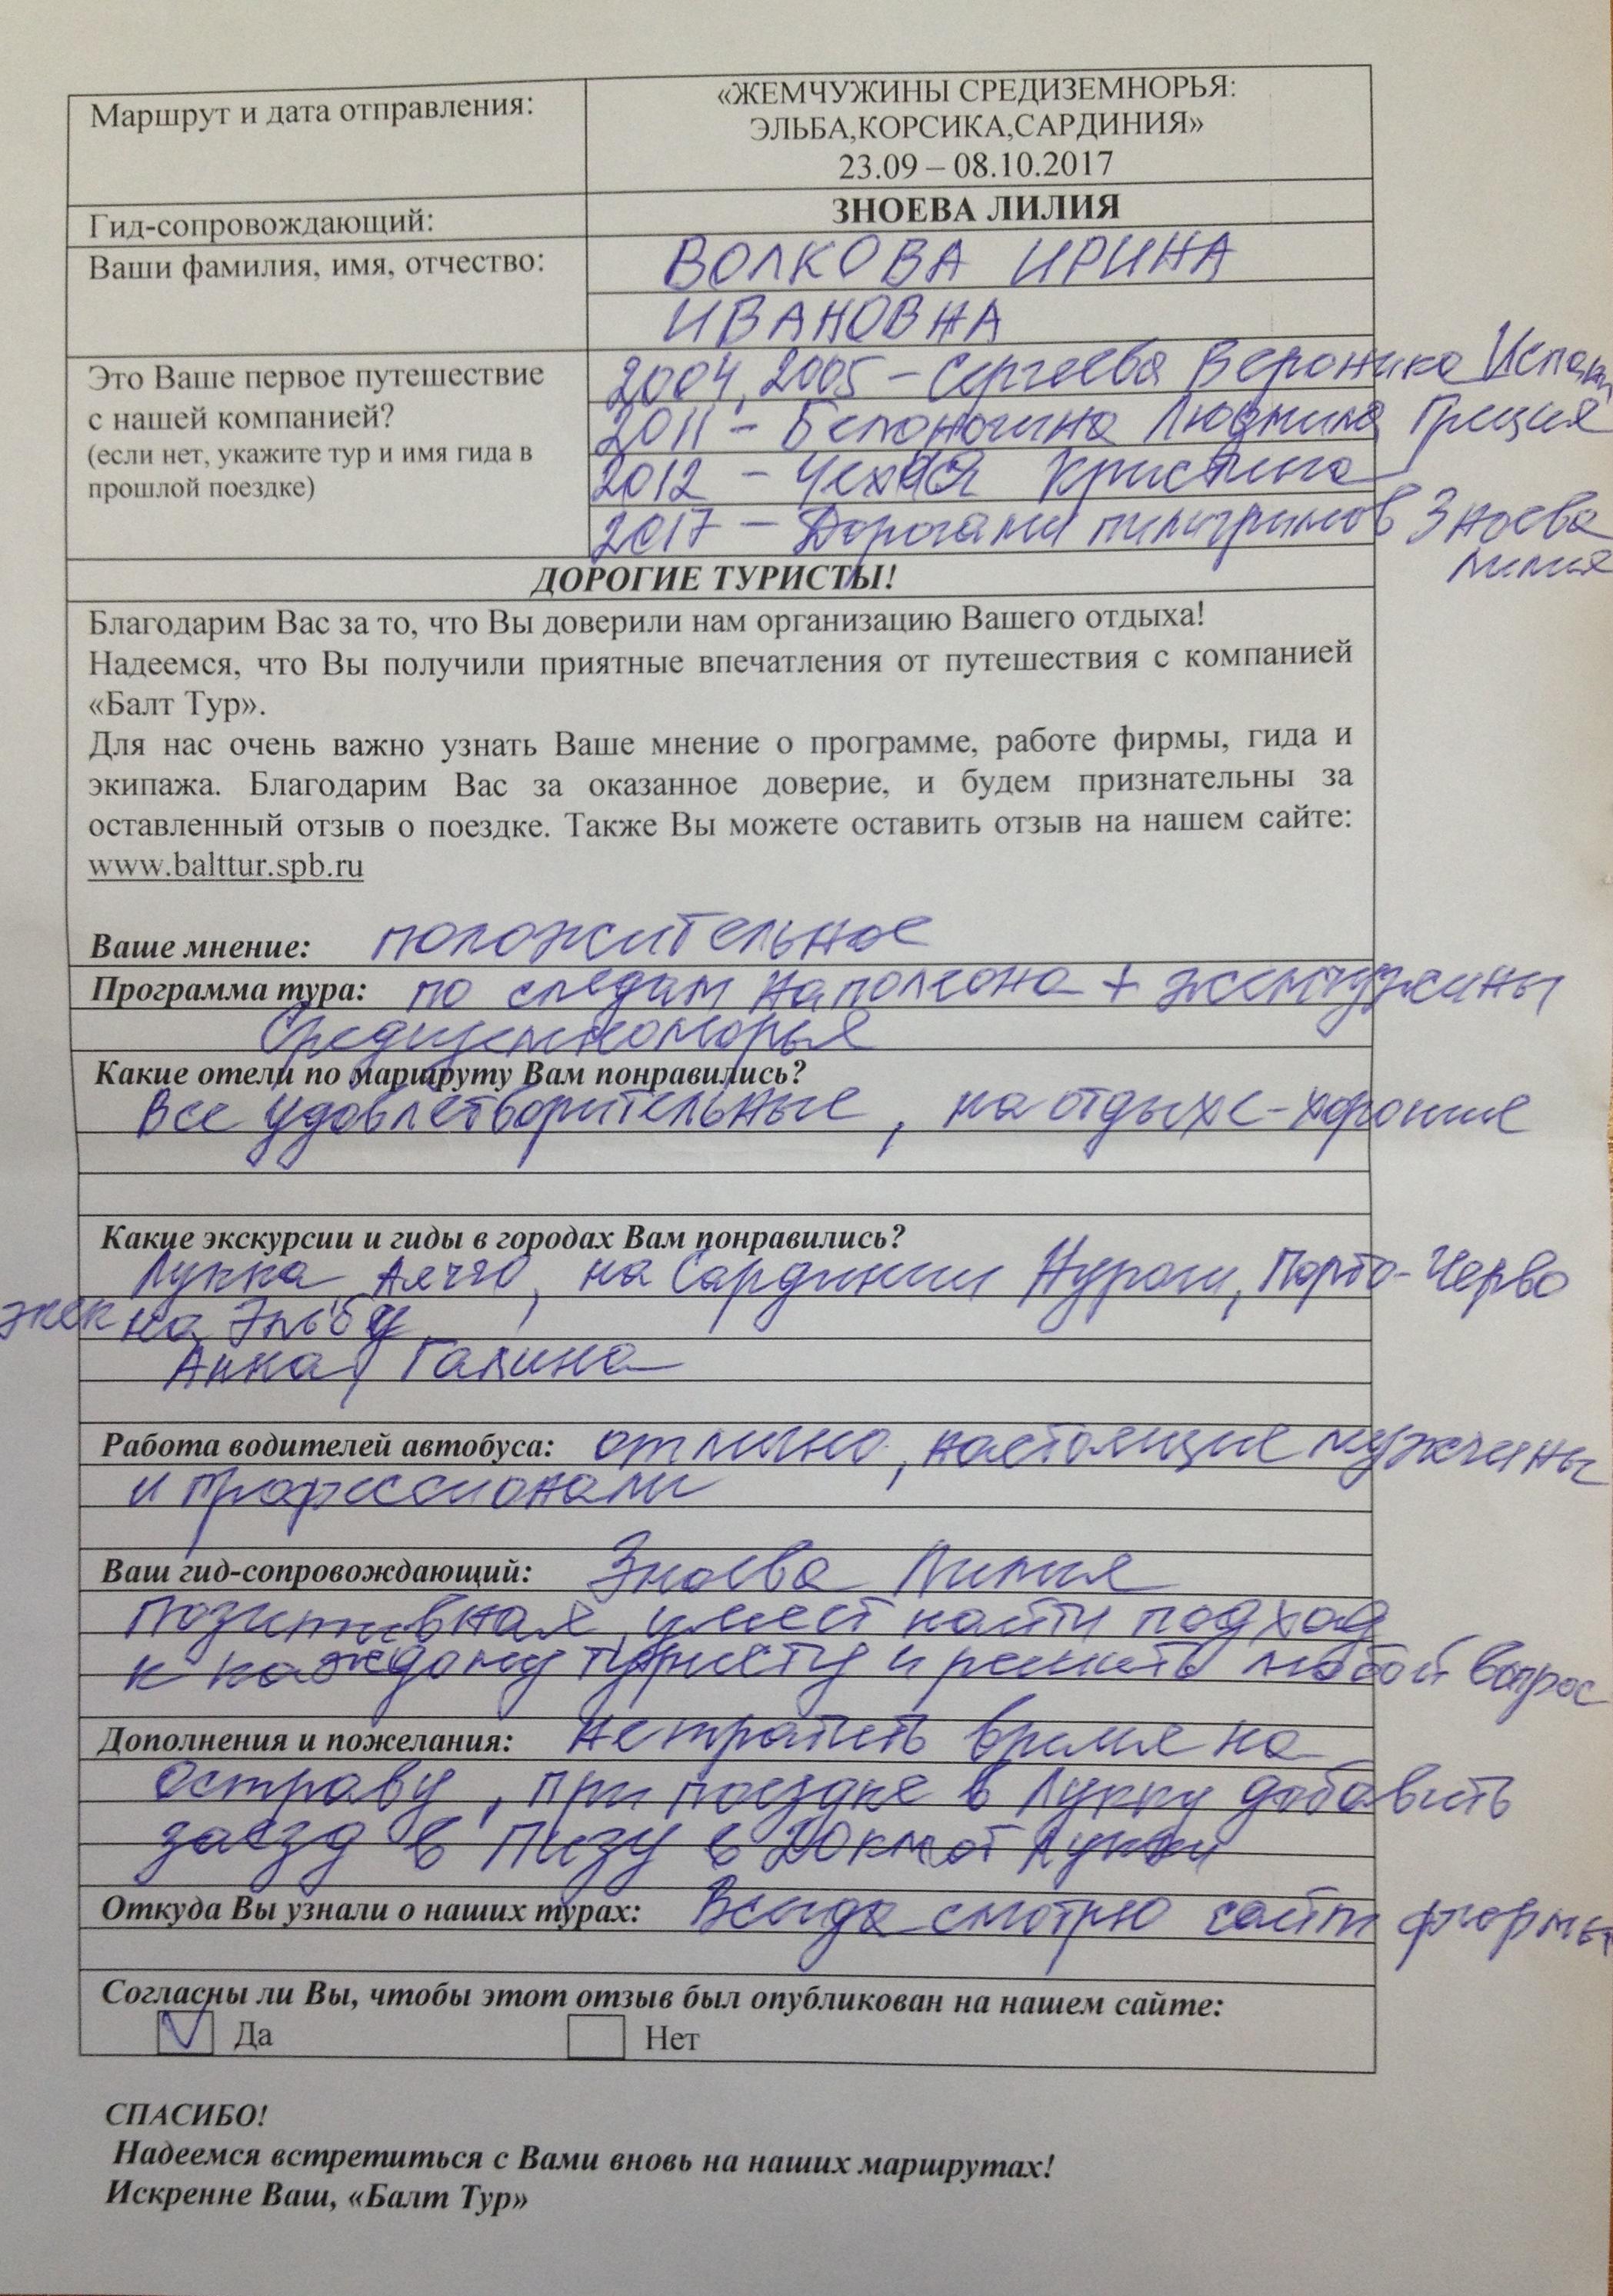 Маршрут и дата отправления:
«ЖЕМЧУЖИНЫ СРЕДИЗЕМНОРЬЯ:
ЭЛЬБА,КОРСИКА,САРДИНИЯ»
23.09 – 08.10.2017
Гид-сопровождающий:
ЗНОЕВА ЛИЛИЯ
Ваши фамилия, имя, отчество:
ВОЛКОВА ИРИНА
ИВАНОВНА
Это Ваше первое путешествие
с нашей компанией?
(если нет, укажите тур и имя гида в
прошлой поездке)
2004, 2005 – Сергеева Вероника
2011 – Людмила Греция
2012 – Чехия Кристина
2017 – Дорогами пилигримов Зноева
Лилия
ДОРОГИЕ ТУРИСТЫ!
Благодарим Вас за то, что Вы доверили нам организацию Вашего отдыха!
Надеемся, что Вы получили приятные впечатления от путешествия с компанией
«Балт Тур».
Для нас очень важно узнать Ваше мнение о программе, работе фирмы, гида и
экипажа. Благодарим Вас за оказанное доверие, и будем признательны за
оставленный отзыв о поездке. Также Вы можете оставить отзыв на нашем сайте:
www.balttur.spb.ru
Ваше мнение: положительное
Программа тура: по следам Наполеона + жемчужины
Средиземноморья
Какие отели по маршруту Вам понравились?
Все удовлетворительные, на отдыхе – хорошие
Какие экскурсии и гиды в городах Вам понравились?
Лукка, Аяччо, на Сардинии Нураги, Порто-Черво
экск на Эльбу
Анна, Галина
Работа водителей автобуса: отлично, настоящие мужчины
и профессионалы
Ваш гид-сопровождающий: Зноева Лилия
Позитивная, умеет найти подход
к каждому туристу и решить любой вопрос
Дополнения и пожелания: не тратить время на
Остраву, при поездке в Лукку добавить
заезд в Пизу в 20 км от Лукки
Откуда Вы узнали о наших турах: Всегда смотрю сайт фирмы
Согласны ли Вы, чтобы этот отзыв был опубликован на нашем сайте:
Да Нет
СПАСИБО!
Надеемся встретиться с Вами вновь на наших маршрутах!
Искренне Ваш, «Балт Тур»